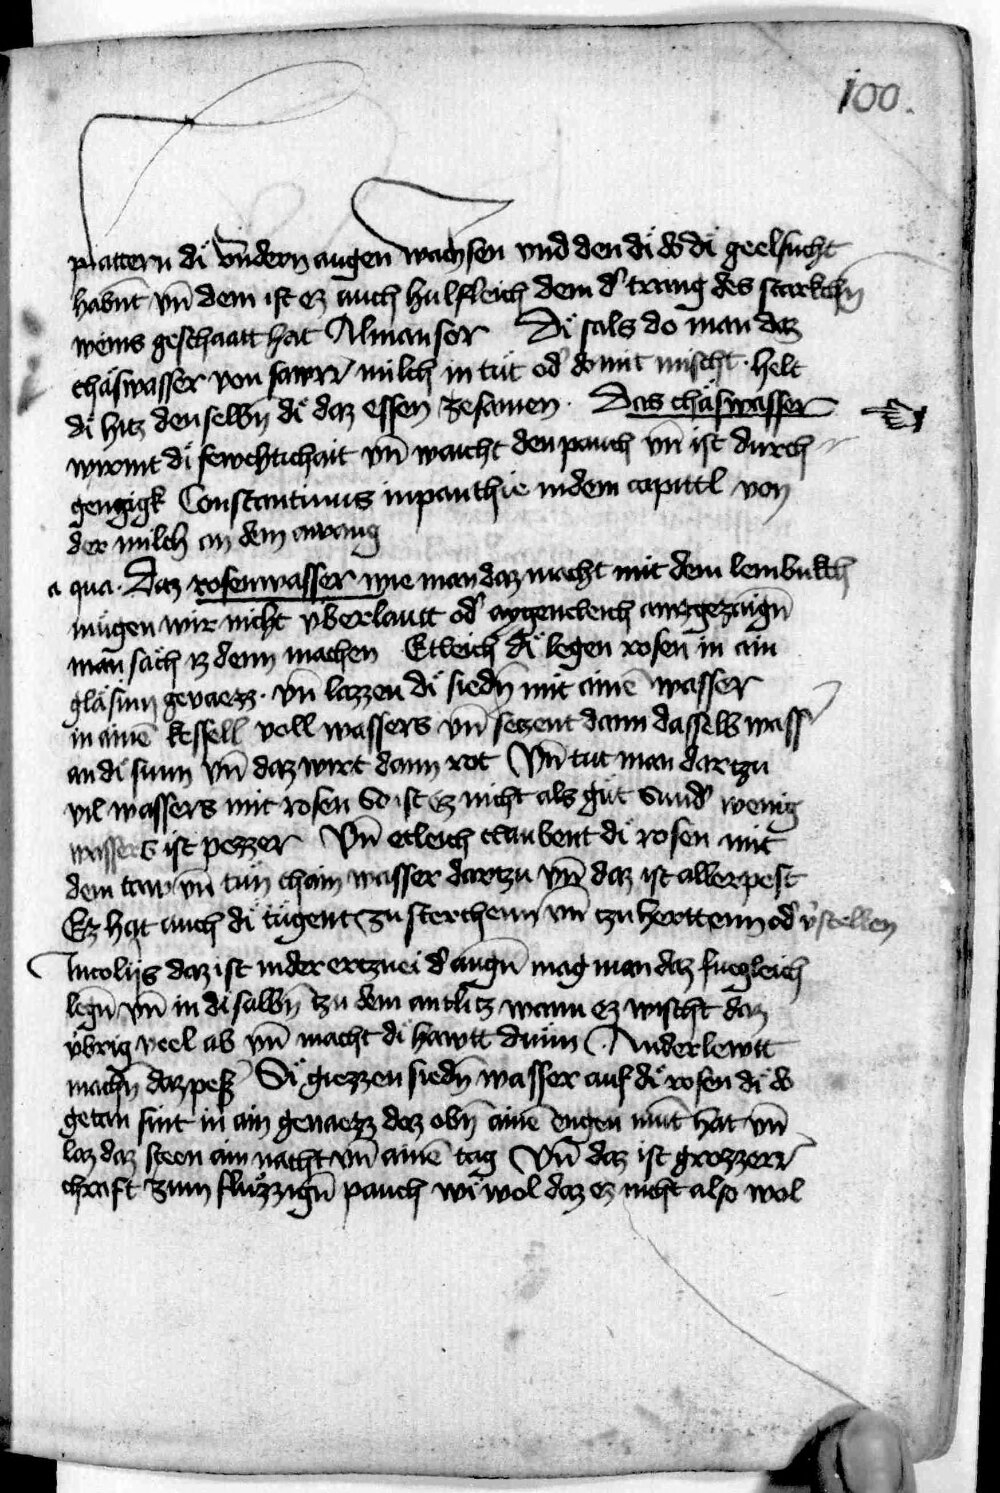 100.
plattern di vndern augen wachsen vnd den di do di geelsucht
habnt vn̄ dem ist ez auch hulfleich dem d' trang des starkchn̄
weins geschaatt hat Almansor Di sals do man daz
chäswasser von sawrr milch in tüt od' domit mischt · helt
di hitz denselbn̄ di daz essen zesamen · Das chäswasser
wirmt di fewchtichait vn̄ waicht den pauch vn̄ ist durch
gengigk Constantinus in panthie in dem capittl von
der milch an dem anvang
aqua · Daz rosenwasser wie man daz macht mit dem lembikch
mügen wir nicht vberlautt od' aygencleich auzgezaign̄
man säch iz denn machen Etleich di legen rosen in ain
gläsinn gevaezz · vn̄ lazzen di siedn̄ mit ainē wasser
in ainē kessell voll wassers vn̄ seczent dann dasselb wass'
an di sunn vn̄ daz wirt dann rot Vn̄ tut man dartzu
vil wassers mit rosen So ist ez nicht als güt Sund' wenig
wassers ist pezzer Vn̄ etleich claubent di rosen mit
dem taw vn̄ tün chain wasser dartzu vn̄ daz ist allerpest
Ez hat auch di tügent zu sterchenn vn̄ tzu herttenn od' v'stellen
In colliis daz ist in der ertznei d' augn̄ mag man daz fuegleich
legn̄ vn̄ in di salbn̄ tzu dem antlitz wann ez wischt daz
vbrig veel ab vn̄ macht di hawtt dünn Ander lewtt
machn̄ daz pest Si giezzen siedn̄ wasser auf di rosen di do
getan sint in ain gevaezz daz obn̄ ainē engen mūt hat vn̄
laz daz steen ain nacht vn̄ ainē tag Vn̄ daz ist grozzerr
chraft zum fluzzign̄ pauch wi wol daz ez nicht also wol